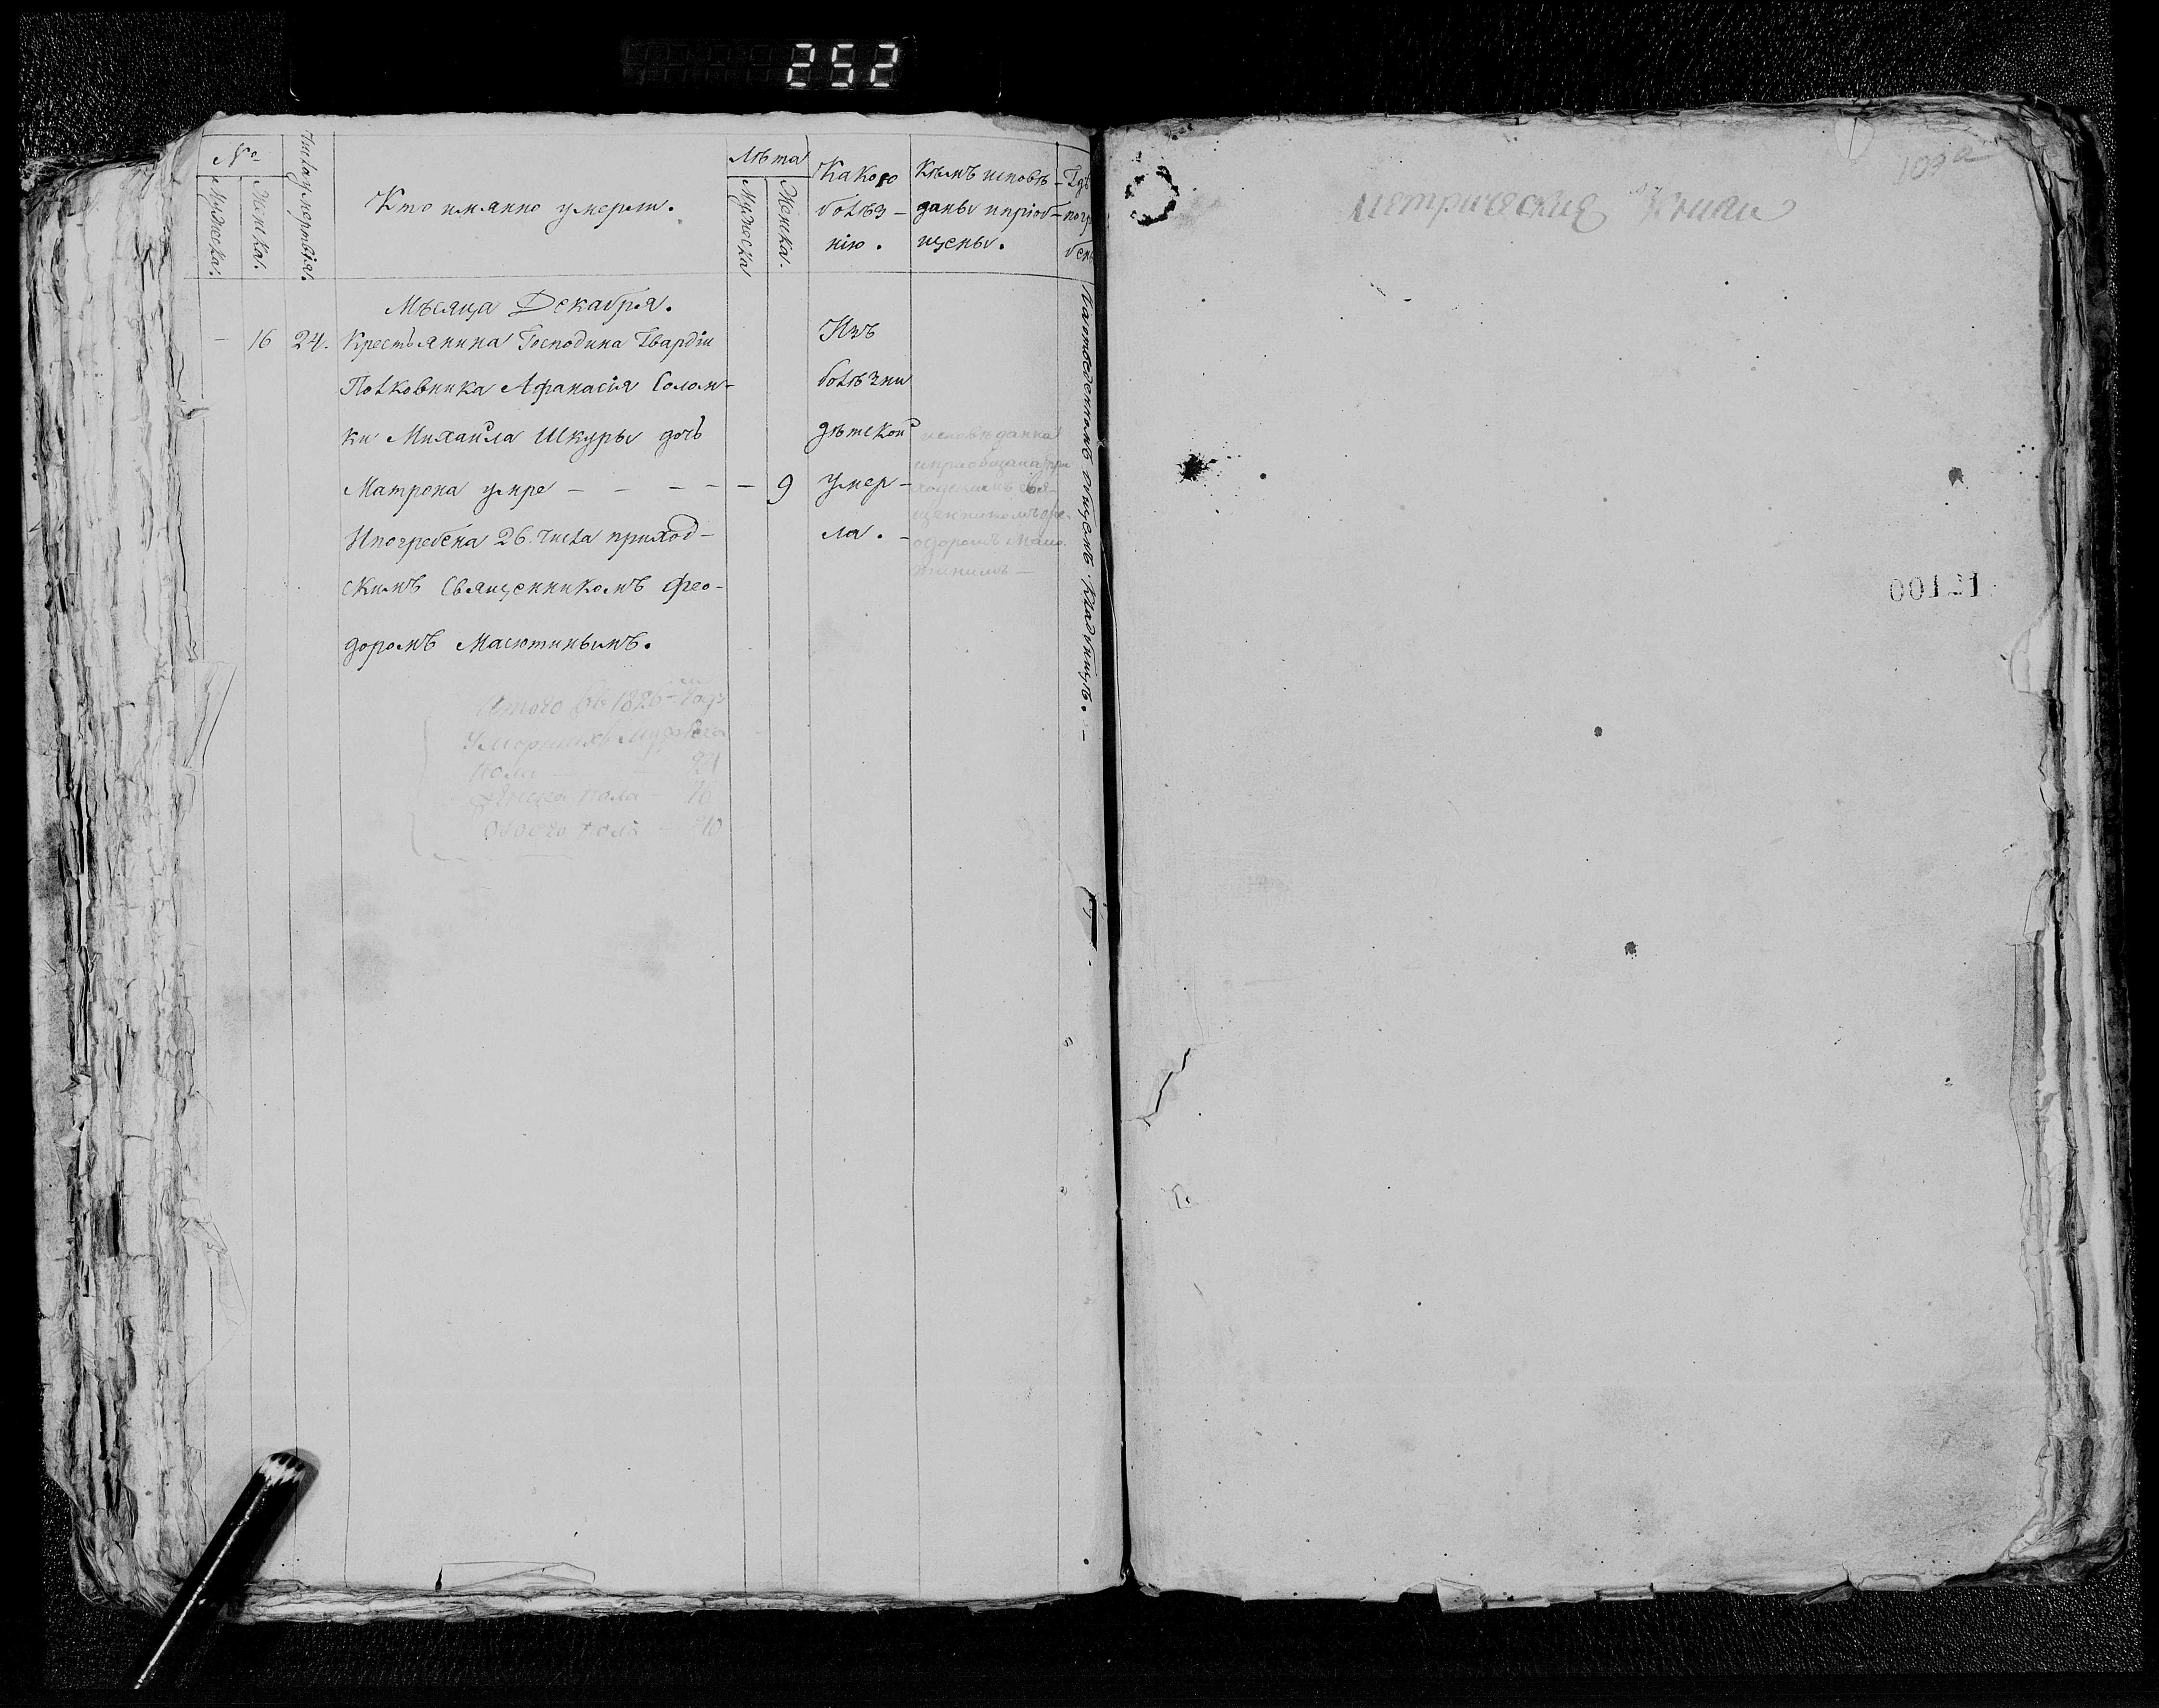 252
№
Мужеска.
Женска.
Числа умертвія.
Кто имянно умерли.
Лѣта
Мужеска
Женска.
Какою
болѣз-
нію.
Кѣмъ исповѣ-
даны и пріоб-
щены.
Гдѣ
погр
бен
Мѣсяца Декабря.
- 16 24. Крестьянина Господина Гвардіи
Полковника Афанасія Солом-
ки Михайла Шкуры дочь
Матрона умре - - - - - 9
И погребена 26. числа приход-
скимъ Священникомъ Фео-
доромъ Масютинымъ.
Изъ
болѣзни
дѣтской
умер-
ла.
исповѣданна
и приобщена при
ходскимъ свя-
щенникомъ Фе-
одоромъ Масю-
тинимъ -
На отведенномъ общемъ кладбищѣ. -
Итого въ 1826 году
Умершихъ Мужеска
пола
Женска пола - 16
Обоего пола - 40
Метрическия Книги